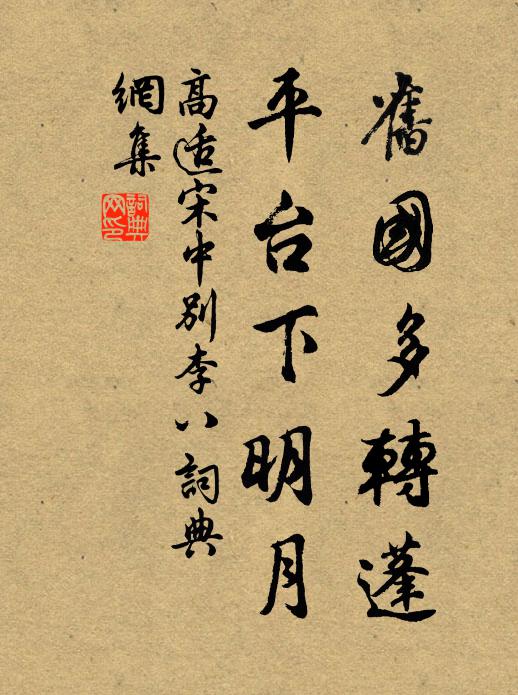 舊國多轉蓬
平台下明月
高适宋中別李八詞典
網集
詞典
网印